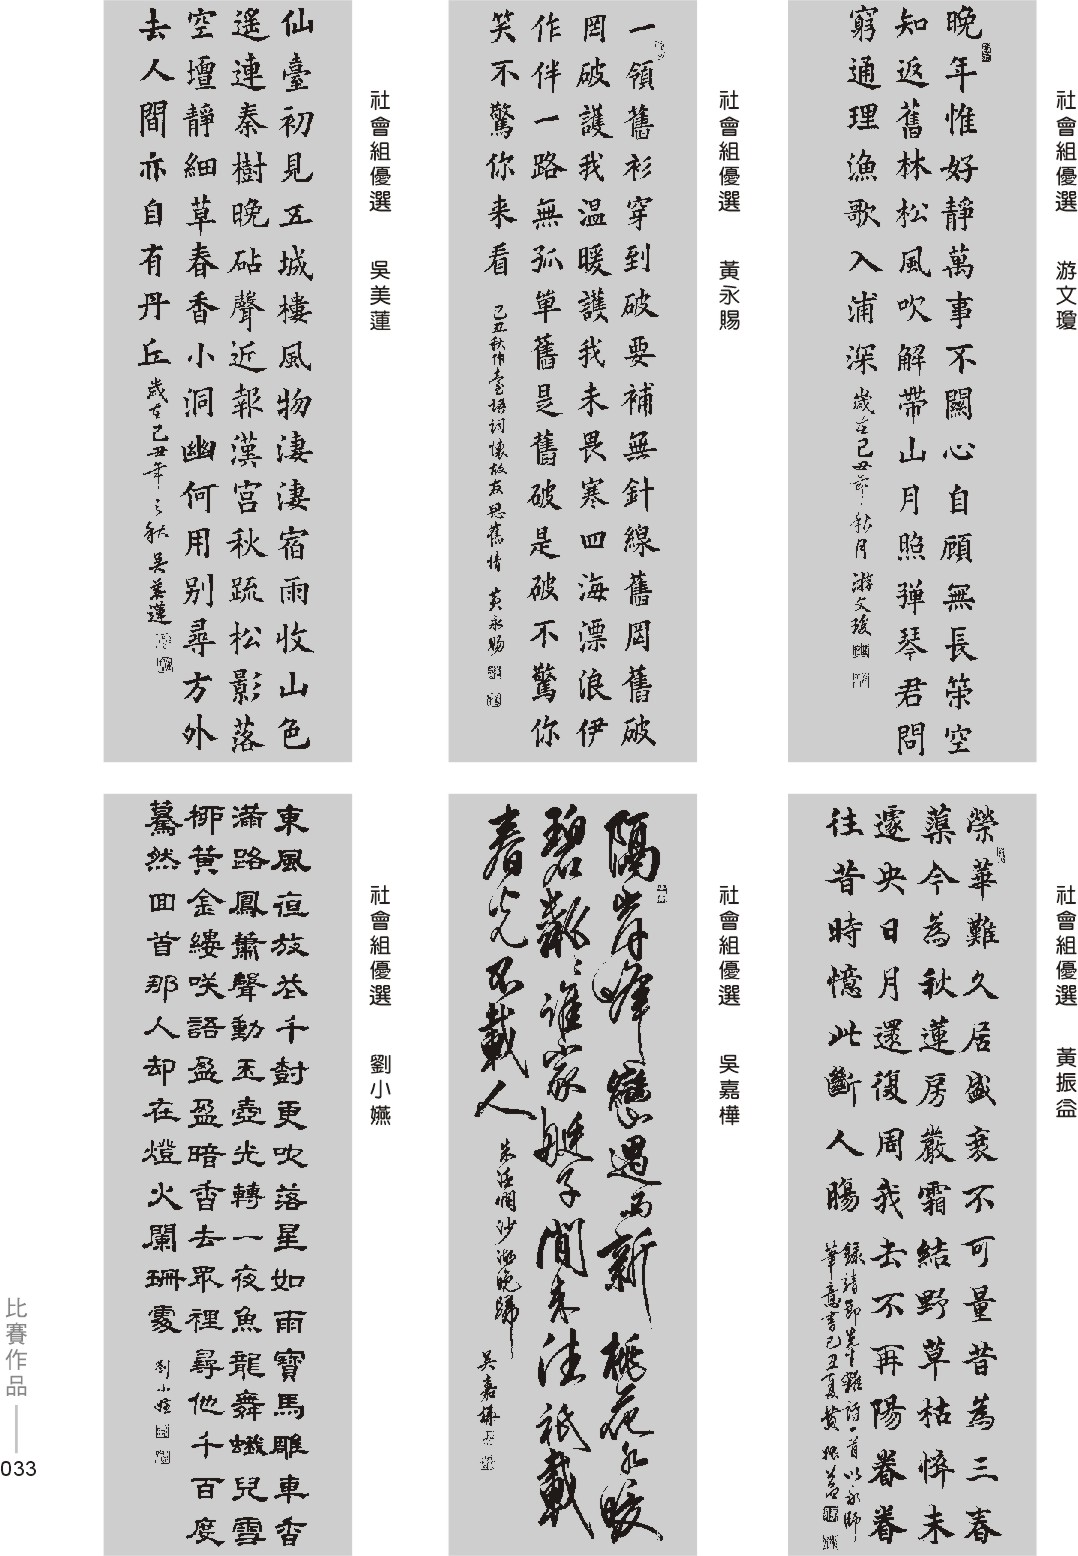 社會組優選　游文瓊
晚年惟好靜萬事不關心自顧無長策空
知返舊林松風吹解帶山月照彈琴君問
窮通理漁歌入浦深
歲在己丑年秋月　游文瓊
社會組優選　黃永賜
一領舊衫穿到破要補無針線舊罔舊破
罔破護我溫暖護我未畏寒四海漂浪伊
作伴一路無孤單舊是舊破是破不驚你
笑不驚你來看
己丑秋作臺語詞懷故友思舊情　黃永賜
社會組優選　吳美蓮
仙臺初見五城樓風物淒淒宿雨收山色
遙連秦樹晚砧聲近報漢宮秋疏松影落
空壇靜細草春香小洞幽何用別尋方外
去人間亦自有丹丘
歲在己丑年之秋　吳美蓮
社會組優選　黃振益
榮華難久居盛衰不可量昔為三春
蕖今為秋蓮房嚴霜結野草枯悴未
遽央日月還復周我去不再陽眷眷
往昔時憶此斷人腸
錄靖節先生雜詩一首以永師
筆意書己丑夏黃振益
社會組優選　吳嘉樺
隔岸峰巒過雨新桃花水暖
碧粼々誰家艇子閒來往祇載
春光不載人
沙洲晚歸
吳嘉樺
社會組優選　劉小嬿
東風夜放花千樹更吹落星如雨寶馬雕車香
滿路鳳簫聲動玉壺光轉一夜魚龍舞蛾兒雪
柳黃金縷咲語盈盈暗香去眾裡尋他千百度
驀然回首那人却在燈火闌珊處
劉小嬿
比賽作品
033